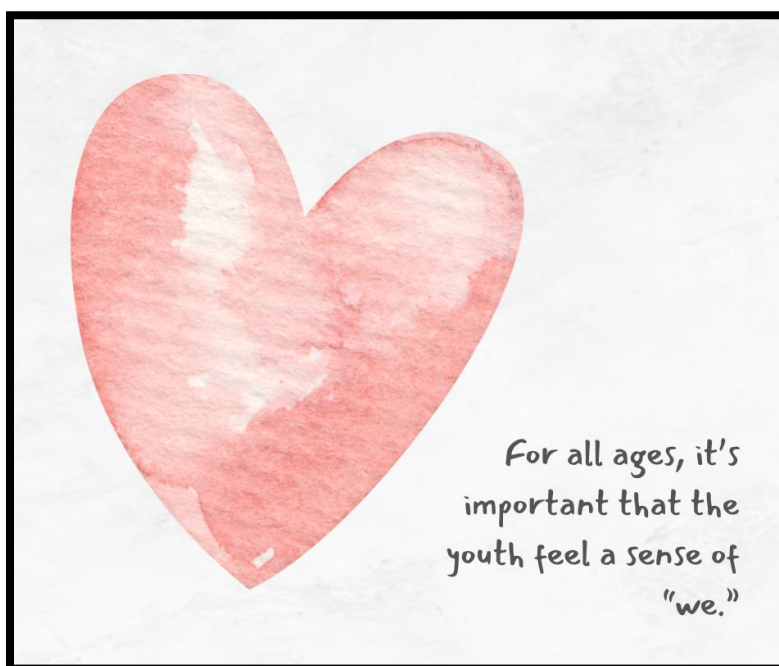 For all ages, it's
important that the
youth feel a sense of
"we."